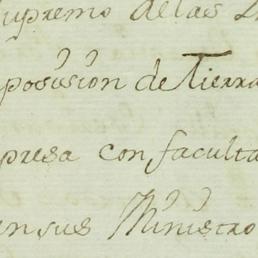 Supremo delas
posision de Tierra
presa con faculta
ensus Ministro